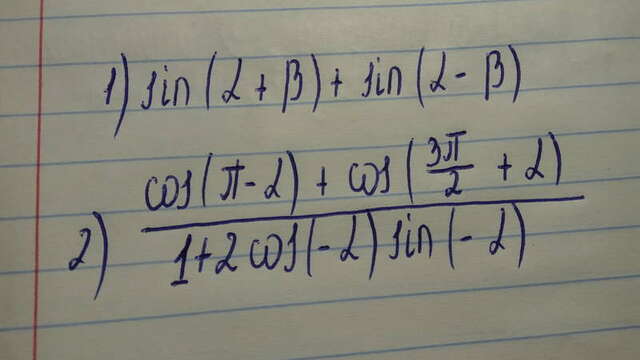 1) sin(α + β) + sin(α - β)
2) \frac{cos(π - α) + cos(\frac{3π}{2} + α)}{1 + 2 cos(-α) sin(-α)}